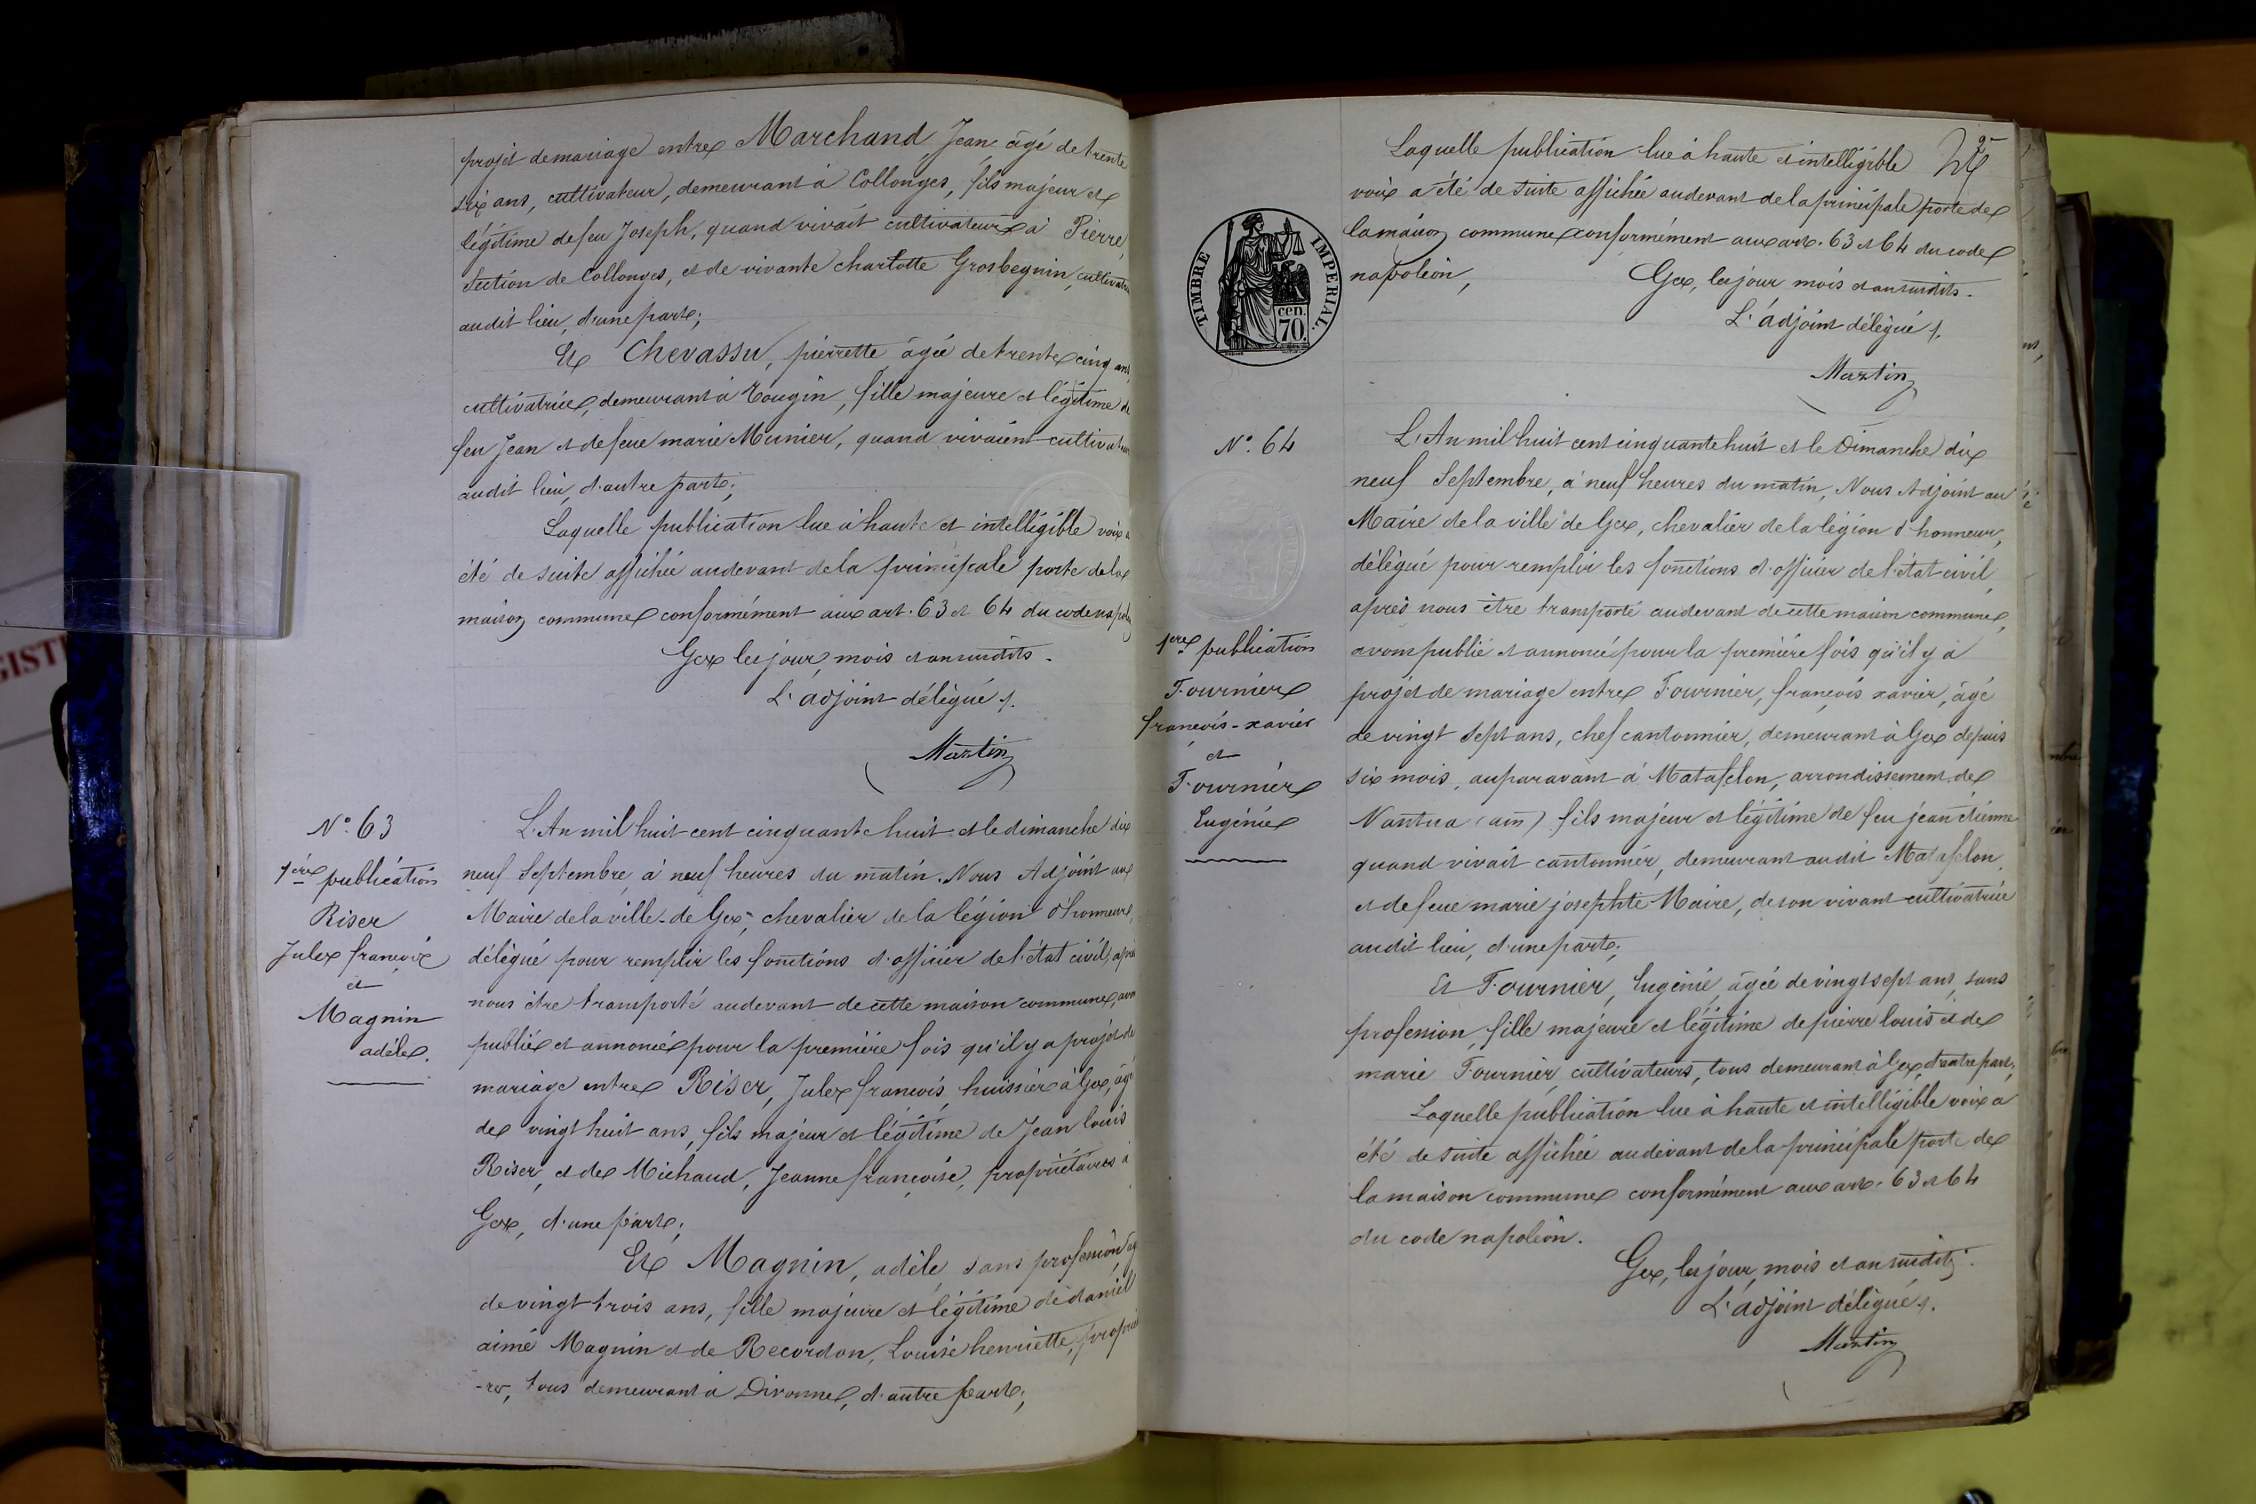 projet de mariage entre Marchand Jean âgé de trente
six ans, cultivateur, demeurant à Collonges, fils majeur et
légitime de feu Joseph, quand vivait cultivateur à Pierre,
Section de Collonges, et de vivante charlotte Grosbeguin, cultivatrice
audit lieu, d'une part;
Et Chevassu, pierrette âgée de trente cinq ans,
cultivatrice, demeurant à Tougin, fille majeure et légitime de
feu Jean et de feue marie Munier, quand vivaient cultivateurs
audit lieu, d'autre part;
Laquelle publication lue à haute et intelligible voix a
été de suite affichée audevant de la principale porte de la
maison commune conformément aux art. 63 et 64 du code napoléon
Gex les jour, mois et an susdits.
L'adjoint délégué s.
Martin
N°. 63
1ère publication
Riser
Jules françois
et
Magnin
adèle.
L'An mil huit cent cinquante huit et le dimanche dix
neuf Septembre, à neuf heures du matin. Nous Adjoint au
Maire de la ville de Gex, chevalier de la légion d'honneur,
délégué pour remplir les fonctions d'officier de l'état civil, après
nous être transporté audevant de cette maison commune, avons
publié et annoncé pour la première fois qu'il y a projet de
mariage entre Riser, Jules françois, huissier à Gex, âgé
de vingt huit ans, fils majeur et légitime de Jean Louis
Riser, et de Michaud, Jeanne françoise, propriétaires à
Gex, d'une part;
Et Magnin, adèle, sans profession, âgée
de vingt trois ans, fille majeure et légitime de daniel
aimé Magnin et de Recordon, Louise henriette, propriétai
-res, tous demeurant à Divonne, d'autre part;
Laquelle publication lue à haute et intelligible
voix a été de suite affichée audevant de la principale porte de
la maison commune conformément aux art. 63 et 64 du code
napoléon,
Gex, les jour mois et an susdits.
L'adjoint délégué s.
Martin
TIMBRE IMPERIAL.
cen.
70.
N°. 64
1ere publication
Fournier
françois-xavier
et
Fournier
Eugénie
L'An mil huit cent cinquante huit et le Dimanche dix
neuf Septembre, à neuf heures du matin, Nous Adjoint au
Maire de la ville de Gex, chevalier de la légion d'honneur,
délégué pour remplir les fonctions d'officier de l'état civil,
après nous être transporté audevant de cette maison commune,
avons publié et annoncé pour la première fois qu'il y a
projet de mariage entre Fournier, françois xavier, âgé
de vingt sept ans, chef cantonnier, demeurant à Gex depuis
six mois, auparavant à Matafelon, arrondissement de
Nantua (ain) fils majeur et légitime de feu jean étienne
quand vivait cantonnier, demeurant audit Matafelon
et de feue marie josephte Maire, de son vivant cultivatrice
audit lieu, d'une part;
Et Fournier, Eugénie, âgée de vingt sept ans, sans
profession, fille majeure et légitime de pierre louis et de
marie Fournier, cultivateurs, tous demeurant à Gex, d'autre part;
Laquelle publication lue à haute et intelligible voix a
été de suite affichée audevant de la principale porte de
la maison commune conformément aux art. 63 et 64
du code napoléon.
Gex, les jour, mois et an susdits.
L'adjoint délégué s.
Martin